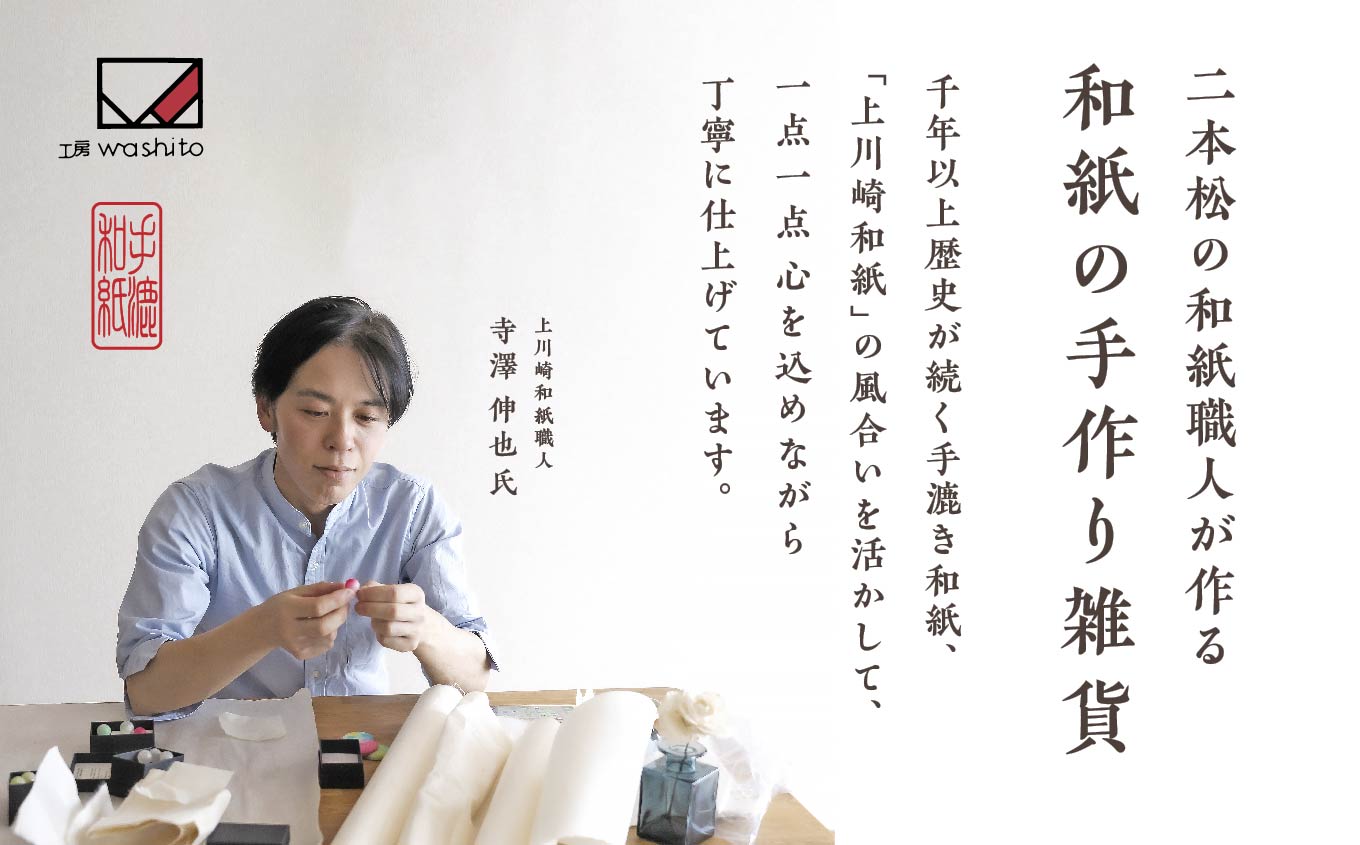 二本松の和紙職人が作る
和紙の手作り雑貨
千年以上歴史が続く手漉き和紙、
「上川崎和紙」の風合いを活かして、
一点一点 心を込めながら
丁寧に仕上げています。
上川崎和紙職人
寺澤 伸也 氏
工房 washito
手漉
和紙